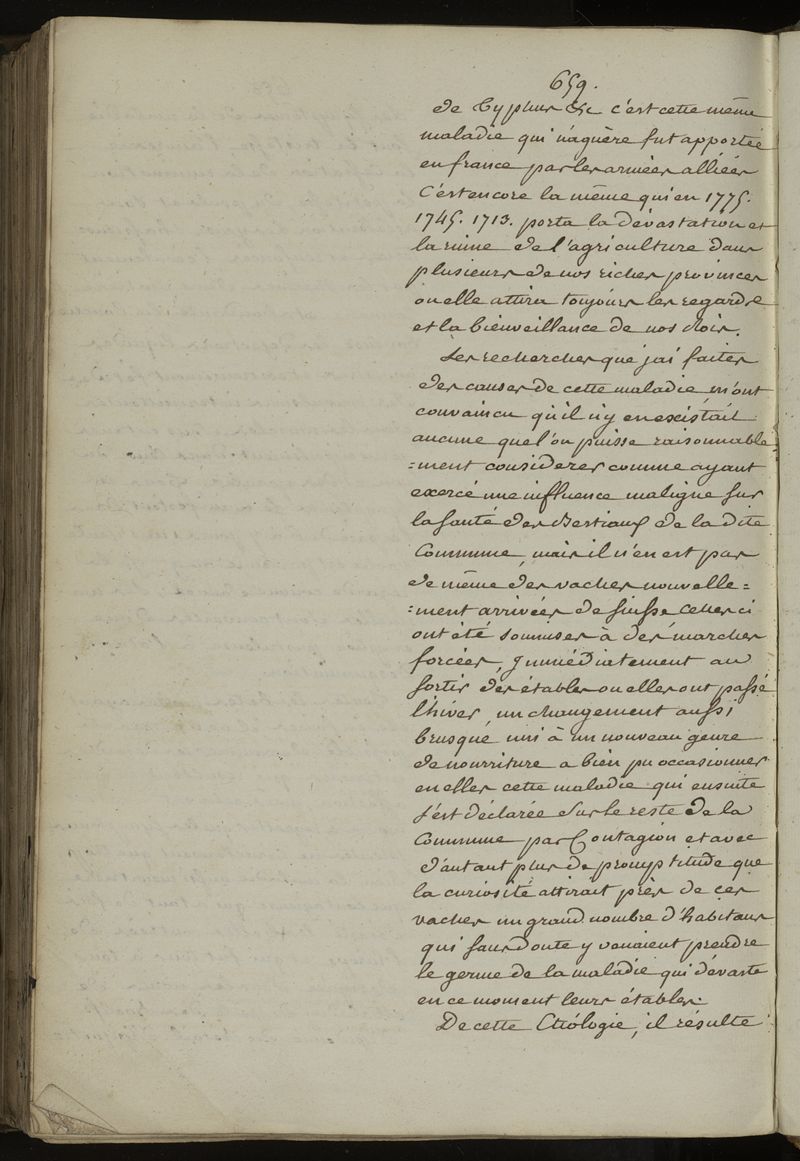 659.
de typhus &c c'est cette même
maladie qui naguère fut apportée
en france par les armées alliées
C'est encore la même qui en 1775.
1745. 1713. porta la dévastation et
la ruine de l'agriculture dans
plusieurs de nos riches provinces
ou elle attira toujours les regards
et la bienveillance de nos Rois.
Les recherches que j'ai faites
des causes de cette maladie m'ont
convaincu qu'il n'y en existait
aucune que l'on puisse raisonnable=
=ment considerer comme ayant
exercé une influence maligne sur
la santé des Bestiaux de la dite
Commune, mais il n'en est pas
de même des vaches nouvelle=
=ment arrivées de suisse celles ci
ont été soumises à des marches
forcées, Immédiatement au
sortir des étables ou elles ont passé
l'hiver, un changement aussi
brusque uni à un nouveau genre
de nourriture a bien pu occasionner
en elles cette maladie qui ensuite
s'est déclarée sur le reste de la
Commune par Contagion et avec
d'autant plus de promptitude que
la curiosité attirait près de ces
vaches un grand nombre d'habitans
qui sans doute y venaient prendre
le germe de la maladie qui dévaste
en ce moment leurs étables.
De cette Etiólogie, il résulte